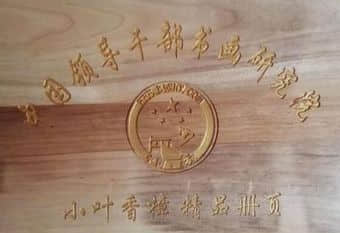 中国领导干部书画研究院
小叶香樟 精品册页